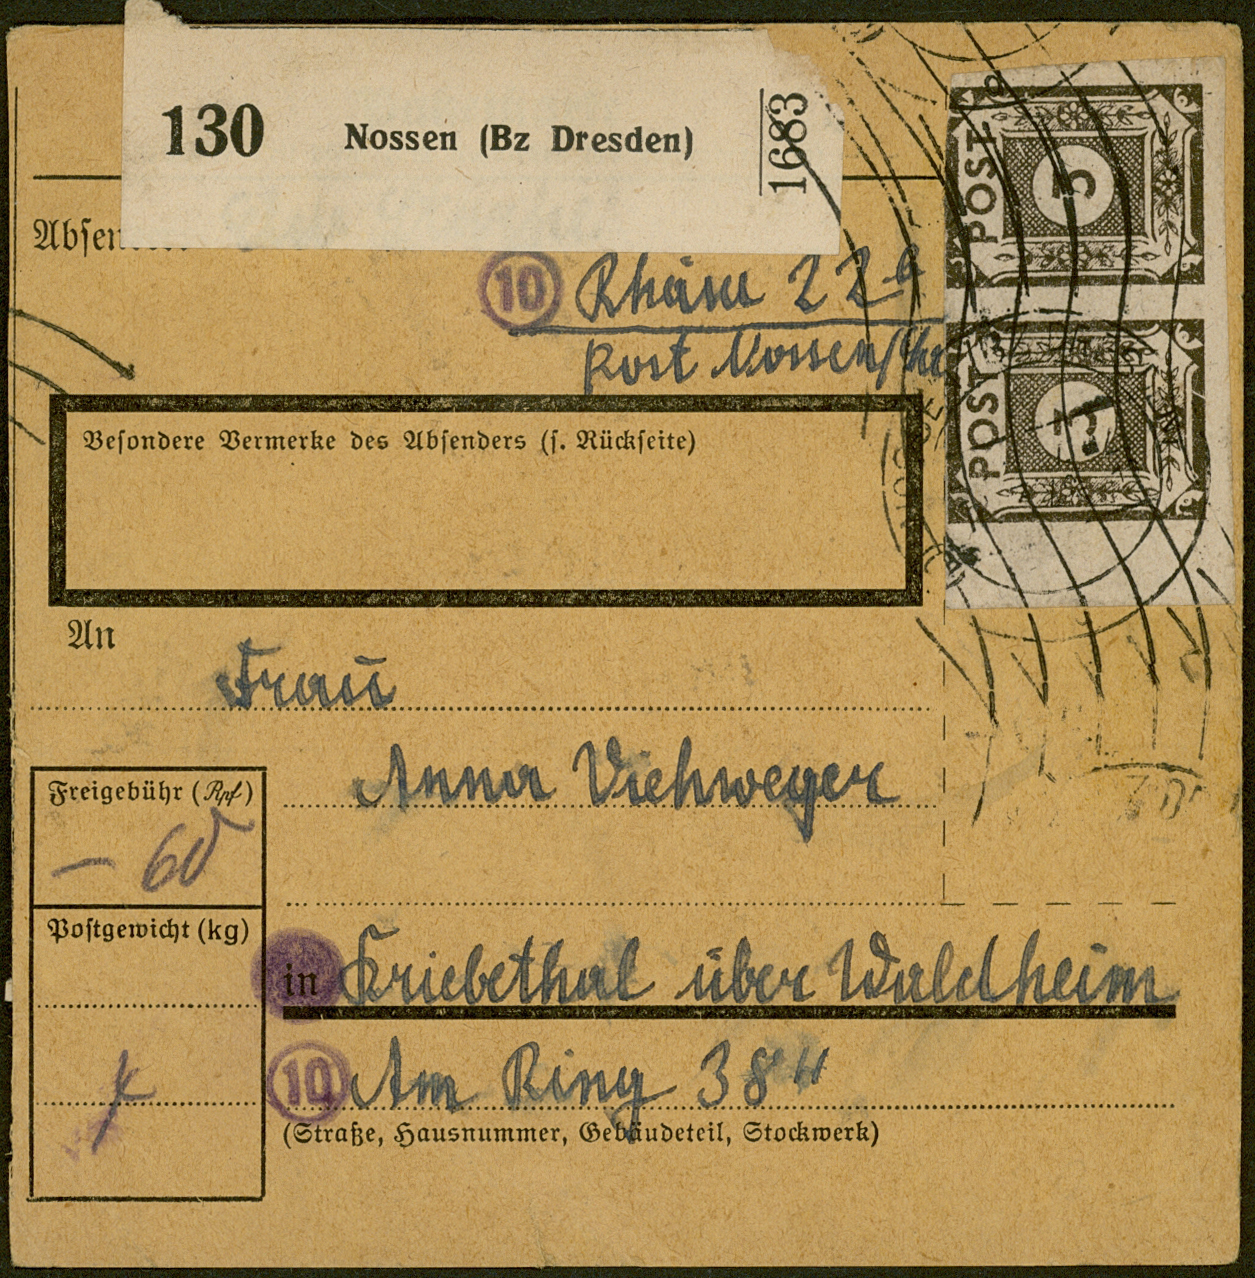 130 Nossen (Bz Dresden) 1683
POST 5
Absen
10 Rhäsa 22
Post Nossen
POST
Besondere Vermerke des Absenders (s. Rückseite)
An
Frau
Anna Viehweger
Freigebühr (Rpf)
– 60
Postgewicht (kg)
in Kriebethal über Waldheim
10 Am Ring 38
(Straße, Hausnummer, Gebäudeteil, Stockwerk)